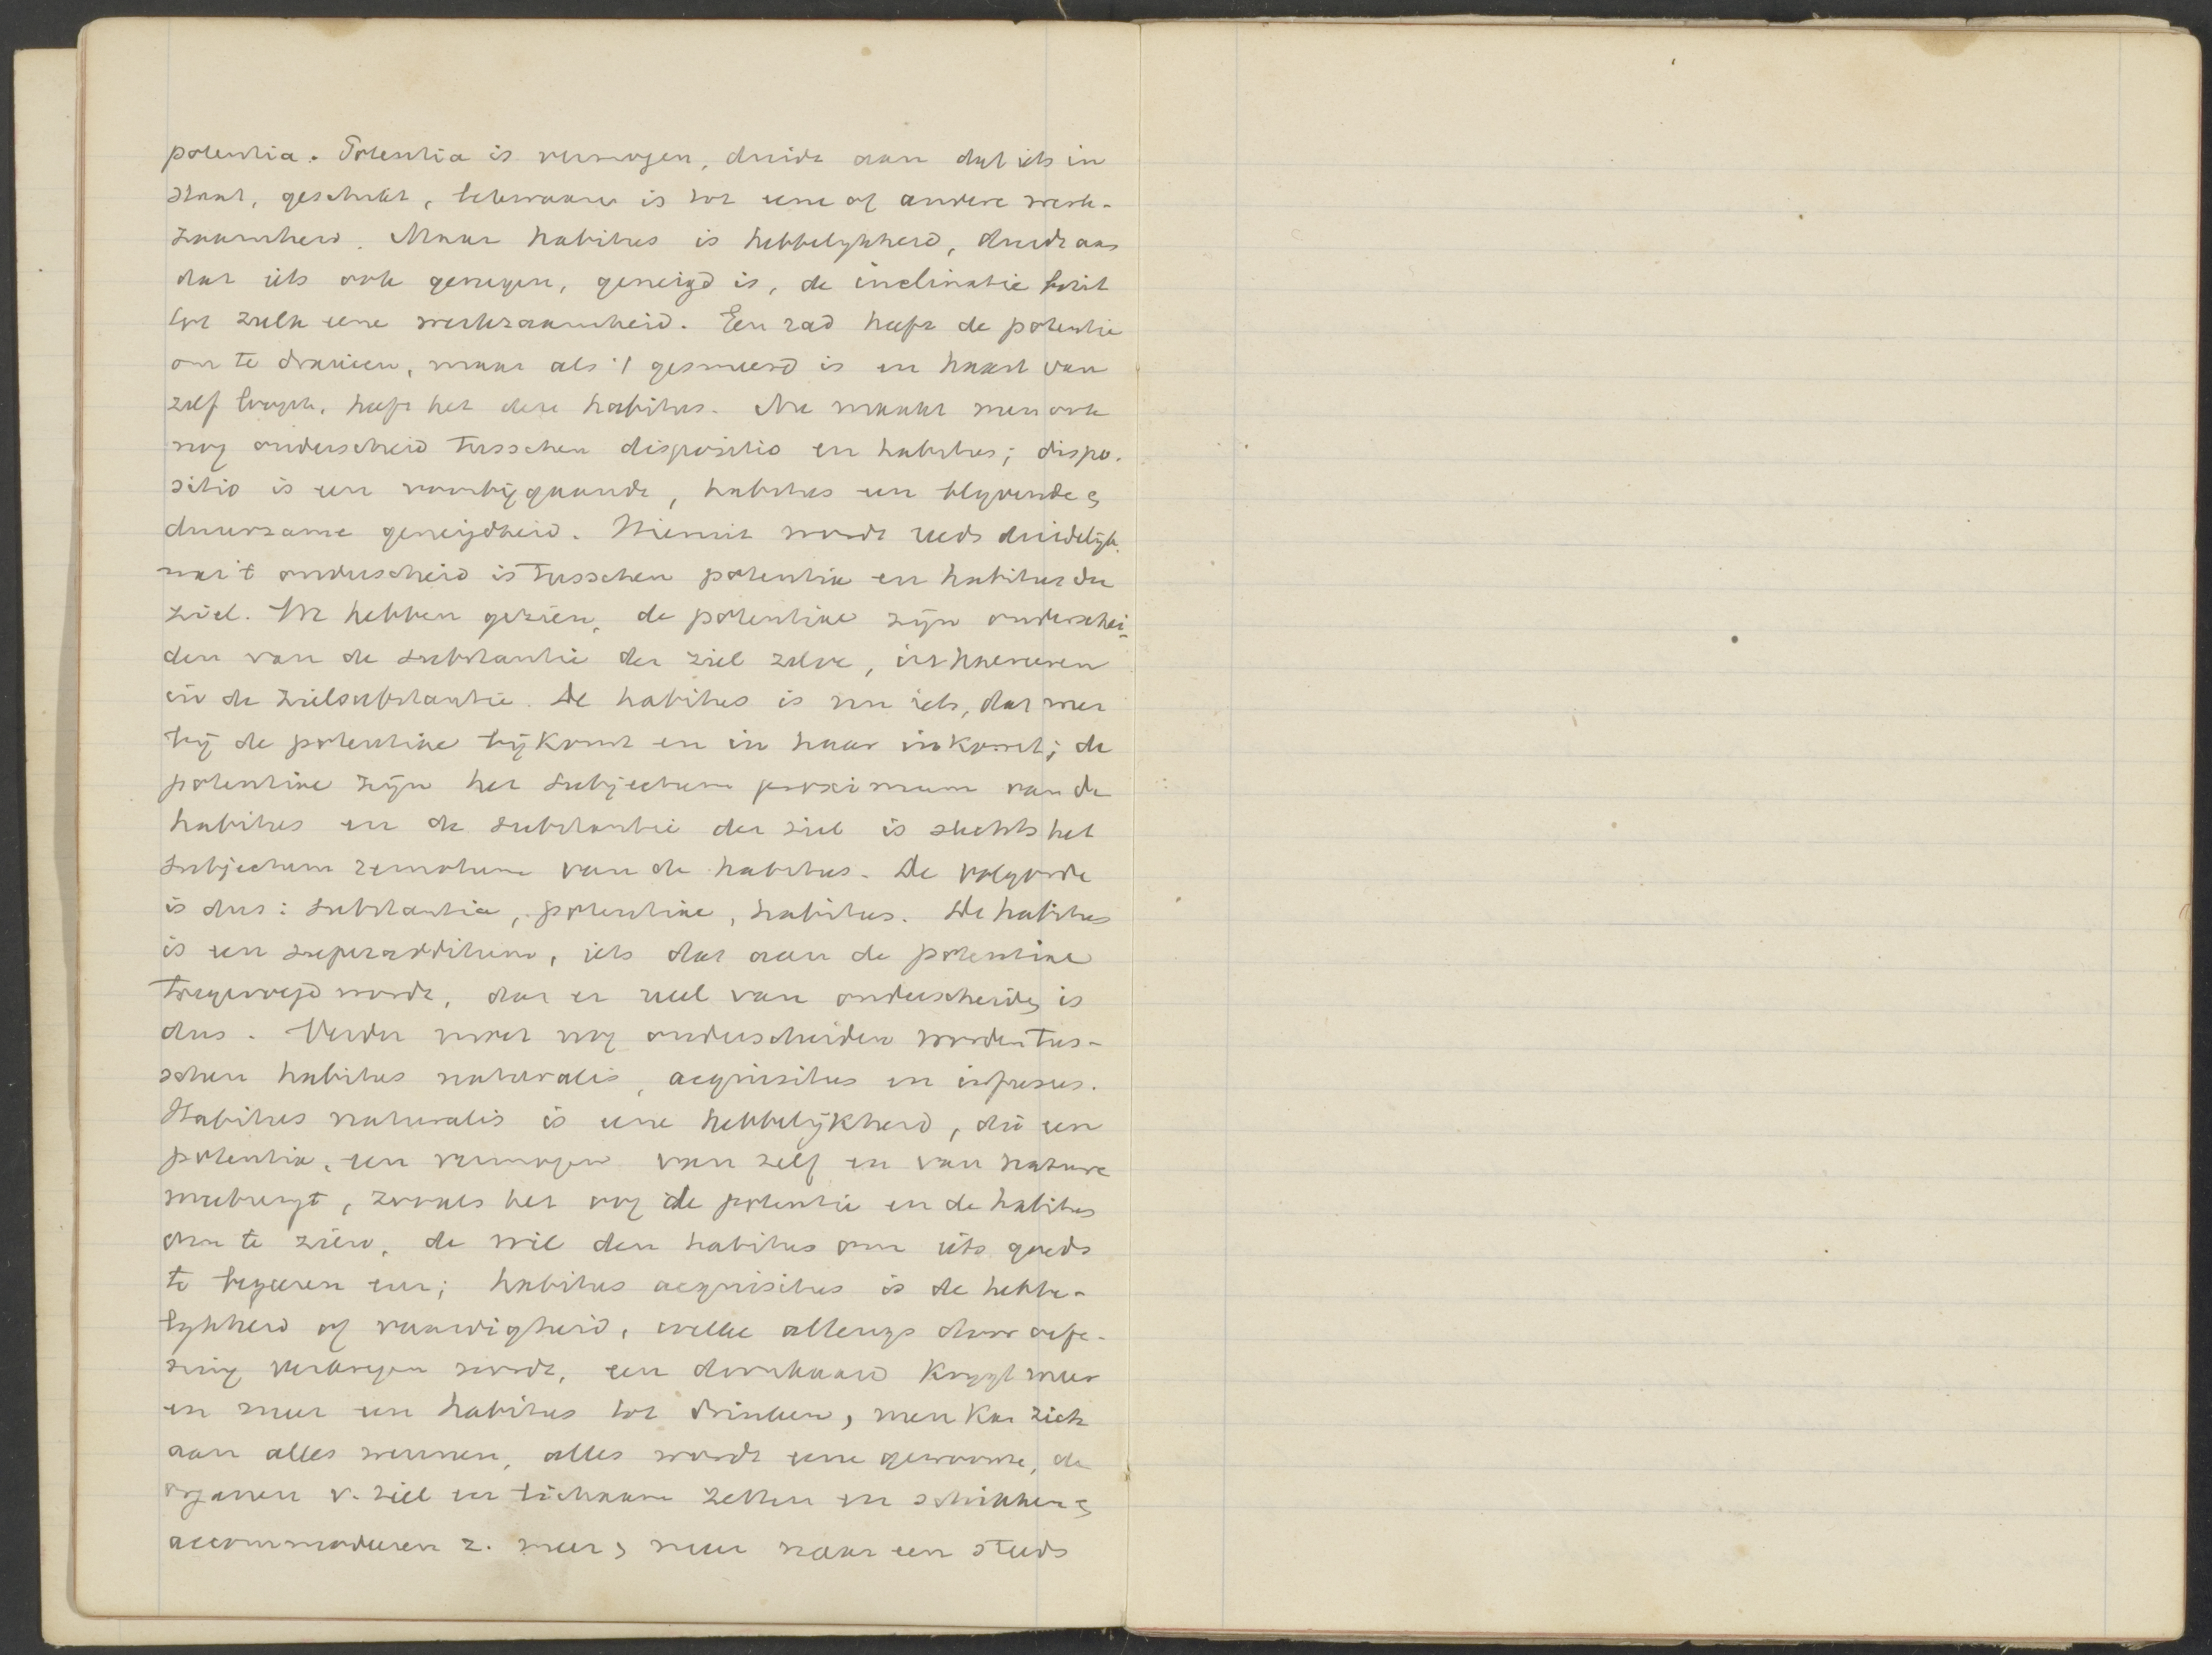 potentia. Potentia is vermogen, duidt aan dat iets in
staat, geschikt, bekwaam is tot eene of andere werk-
zaamheid. Maar habitus is hebbelykheid, duidt aan
dat iets ook genegen, geneigd is, de inclinatie bezit
tot zulk eene werkzaamheid. Een rad heeft de potentie
om te draaien, maar als 't gesmeerd is en haast van
zelf loopt, heeft het deze habitus. Nu maakt men ook
nog onderscheid tusschen dispositio en habitus; dispo-
sitio is een voorbijgaande, habitus een blyvende en
duurzame geneigdheid. Hieruit wordt reeds duidelijk,
wat 't onderscheid is tusschen potentia en habitus der
ziel. We hebben gezien, de potentiae zijn onderschei-
den van de substantie der ziel zelve, inhaereren
in de zielsubstantie. De habitus is nu iets, dat weer
bij de potentiae bijkomt en in haar inkomt; de
potentiae zijn het subjectum proximum van de
habitus en de substantie der ziel is slechts het
subjectum remotum van de habitus. De volgorde
is dus: substantia, potentiae, habitus. De habitus
is een superadditum, iets dat aan de potentiae
toegevoegd wordt, dat er reëel van onderscheiden is
dus. Verder moet nog onderscheiden worden tus-
schen habitus naturalis, acquisitus en infusus.
Habitus naturalis is eene hebbelijkheid, die een
potentia, een vermogen van zelf en van nature
meebrengt, zooals het oog de potentie en de habitus
om te zien, de wil den habitus om iets goeds
te begeeren enz; habitus acquisitus is de hebbe-
lykheid of vaardigheid, welke allengs door oefe-
ning verkregen wordt, een dronkaard krygt meer
en meer een habitus tot drinken, men kan zich
aan alles wennen, alles wordt eene gewoonte, de
organen v. ziel en lichaam zetten en schikken en
accommoderen z. meer en meer naar een steeds